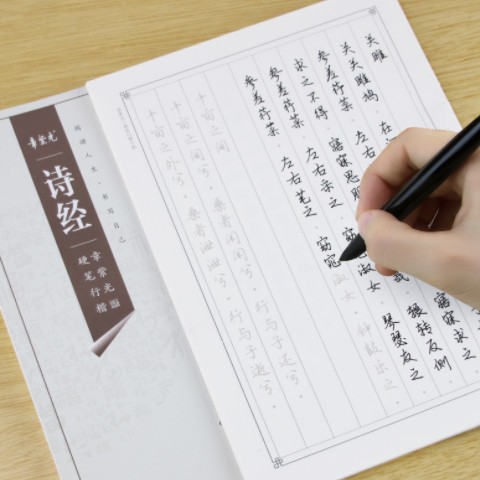 关雎
关关雎鸠 在
参差荇菜 左右 寤寐求之
求之不得 寤寐思服 哉 辗转反侧
参差荇菜 左右采之 窈窕淑女 琴瑟友之
参差荇菜 左右芼之 窈窕淑女 钟鼓乐之
十亩之间兮 桑者闲闲兮 行与子还兮
十亩之外兮 桑者泄泄兮 行与子逝兮
阅读人生·书写自己
章紫光
诗经
章紫光
硬笔行楷